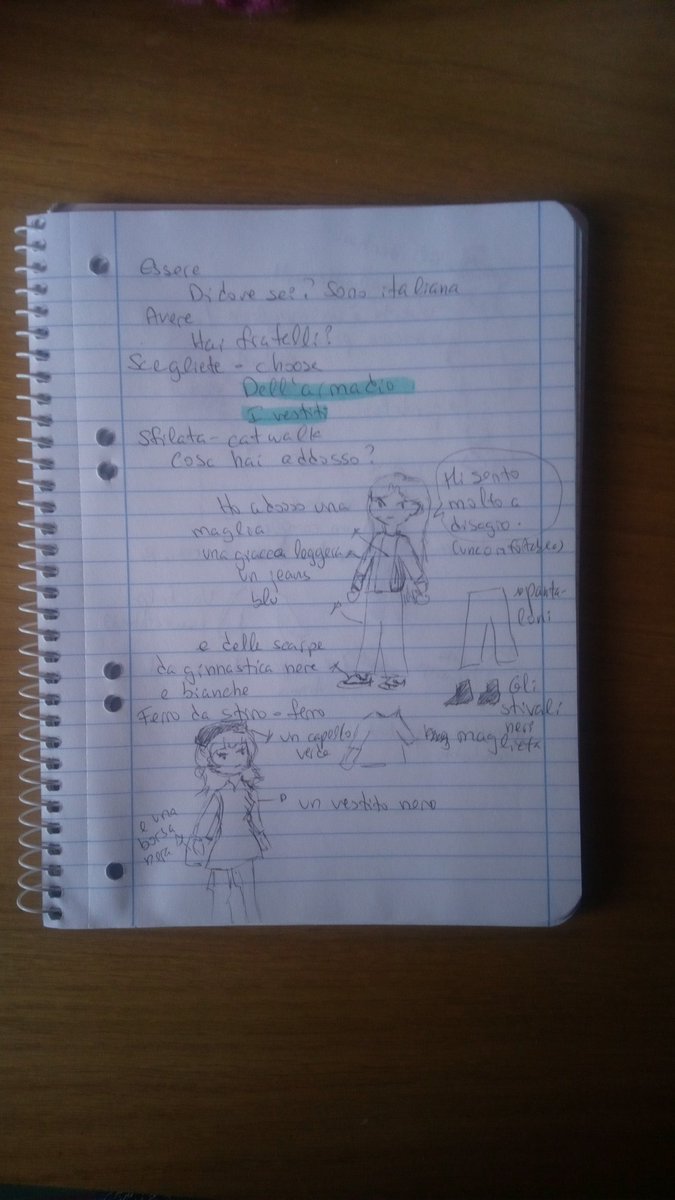 Essere
Di dove sei? Sono italiana
Avere
Hai fratelli?
Scegliete - choose
Dell'armadio
I vestiti
Sfilata - catwalk
Cosa hai addosso?
Mi sento
molto a
disagio.
(uncomfortable)
Ho adosso una
maglia
una giacca leggera
un jeans
blu
panta-
loni
e delle scarpe
da ginnastica nere
e bianche
Gli
stivali
neri
Ferro da stiro - ferro
un capello
verde
maglietta
un vestito nero
e una
borsa
nera